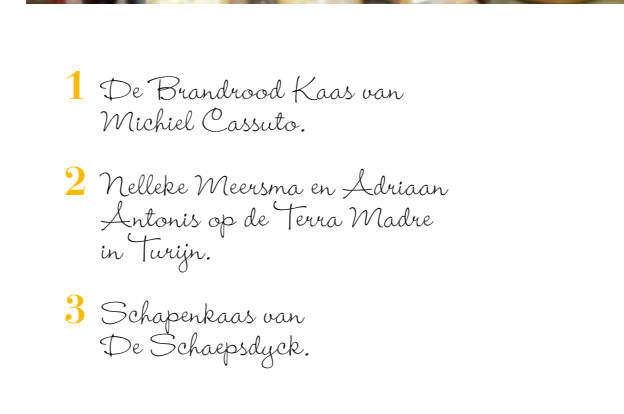 1 De Brandrood Kaas van
Michiel Cassuto.
2 Nelleke Meersma en Adriaan
Antonis op de Terra Madre
in Turijn.
3 Schapenkaas van
De Schaepsdyck.